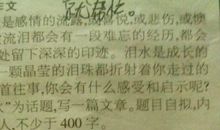 作文
是感情的流露,或喜悦,或悲伤,或懊
次流泪都会有一段难忘的经历,都会
处留下深深的印迹。泪水是成长的
一颗晶莹的泪珠都折射着你走过的
首往事,你会有什么感受和启示呢?
水”为话题,写一篇文章。题目自拟,内
人,不少于 400 字。